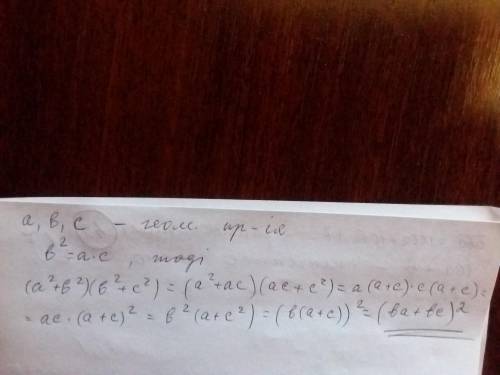 a, b, c – геом. пр-ія
b² = a·c, тоді
(a²+b²)(b²+c²) = (a²+ac)(ac+c²) = a(a+c)·c(a+c) =
= ac·(a+c)² = b²(a+c²) = (b(a+c))² = (ba+bc)²